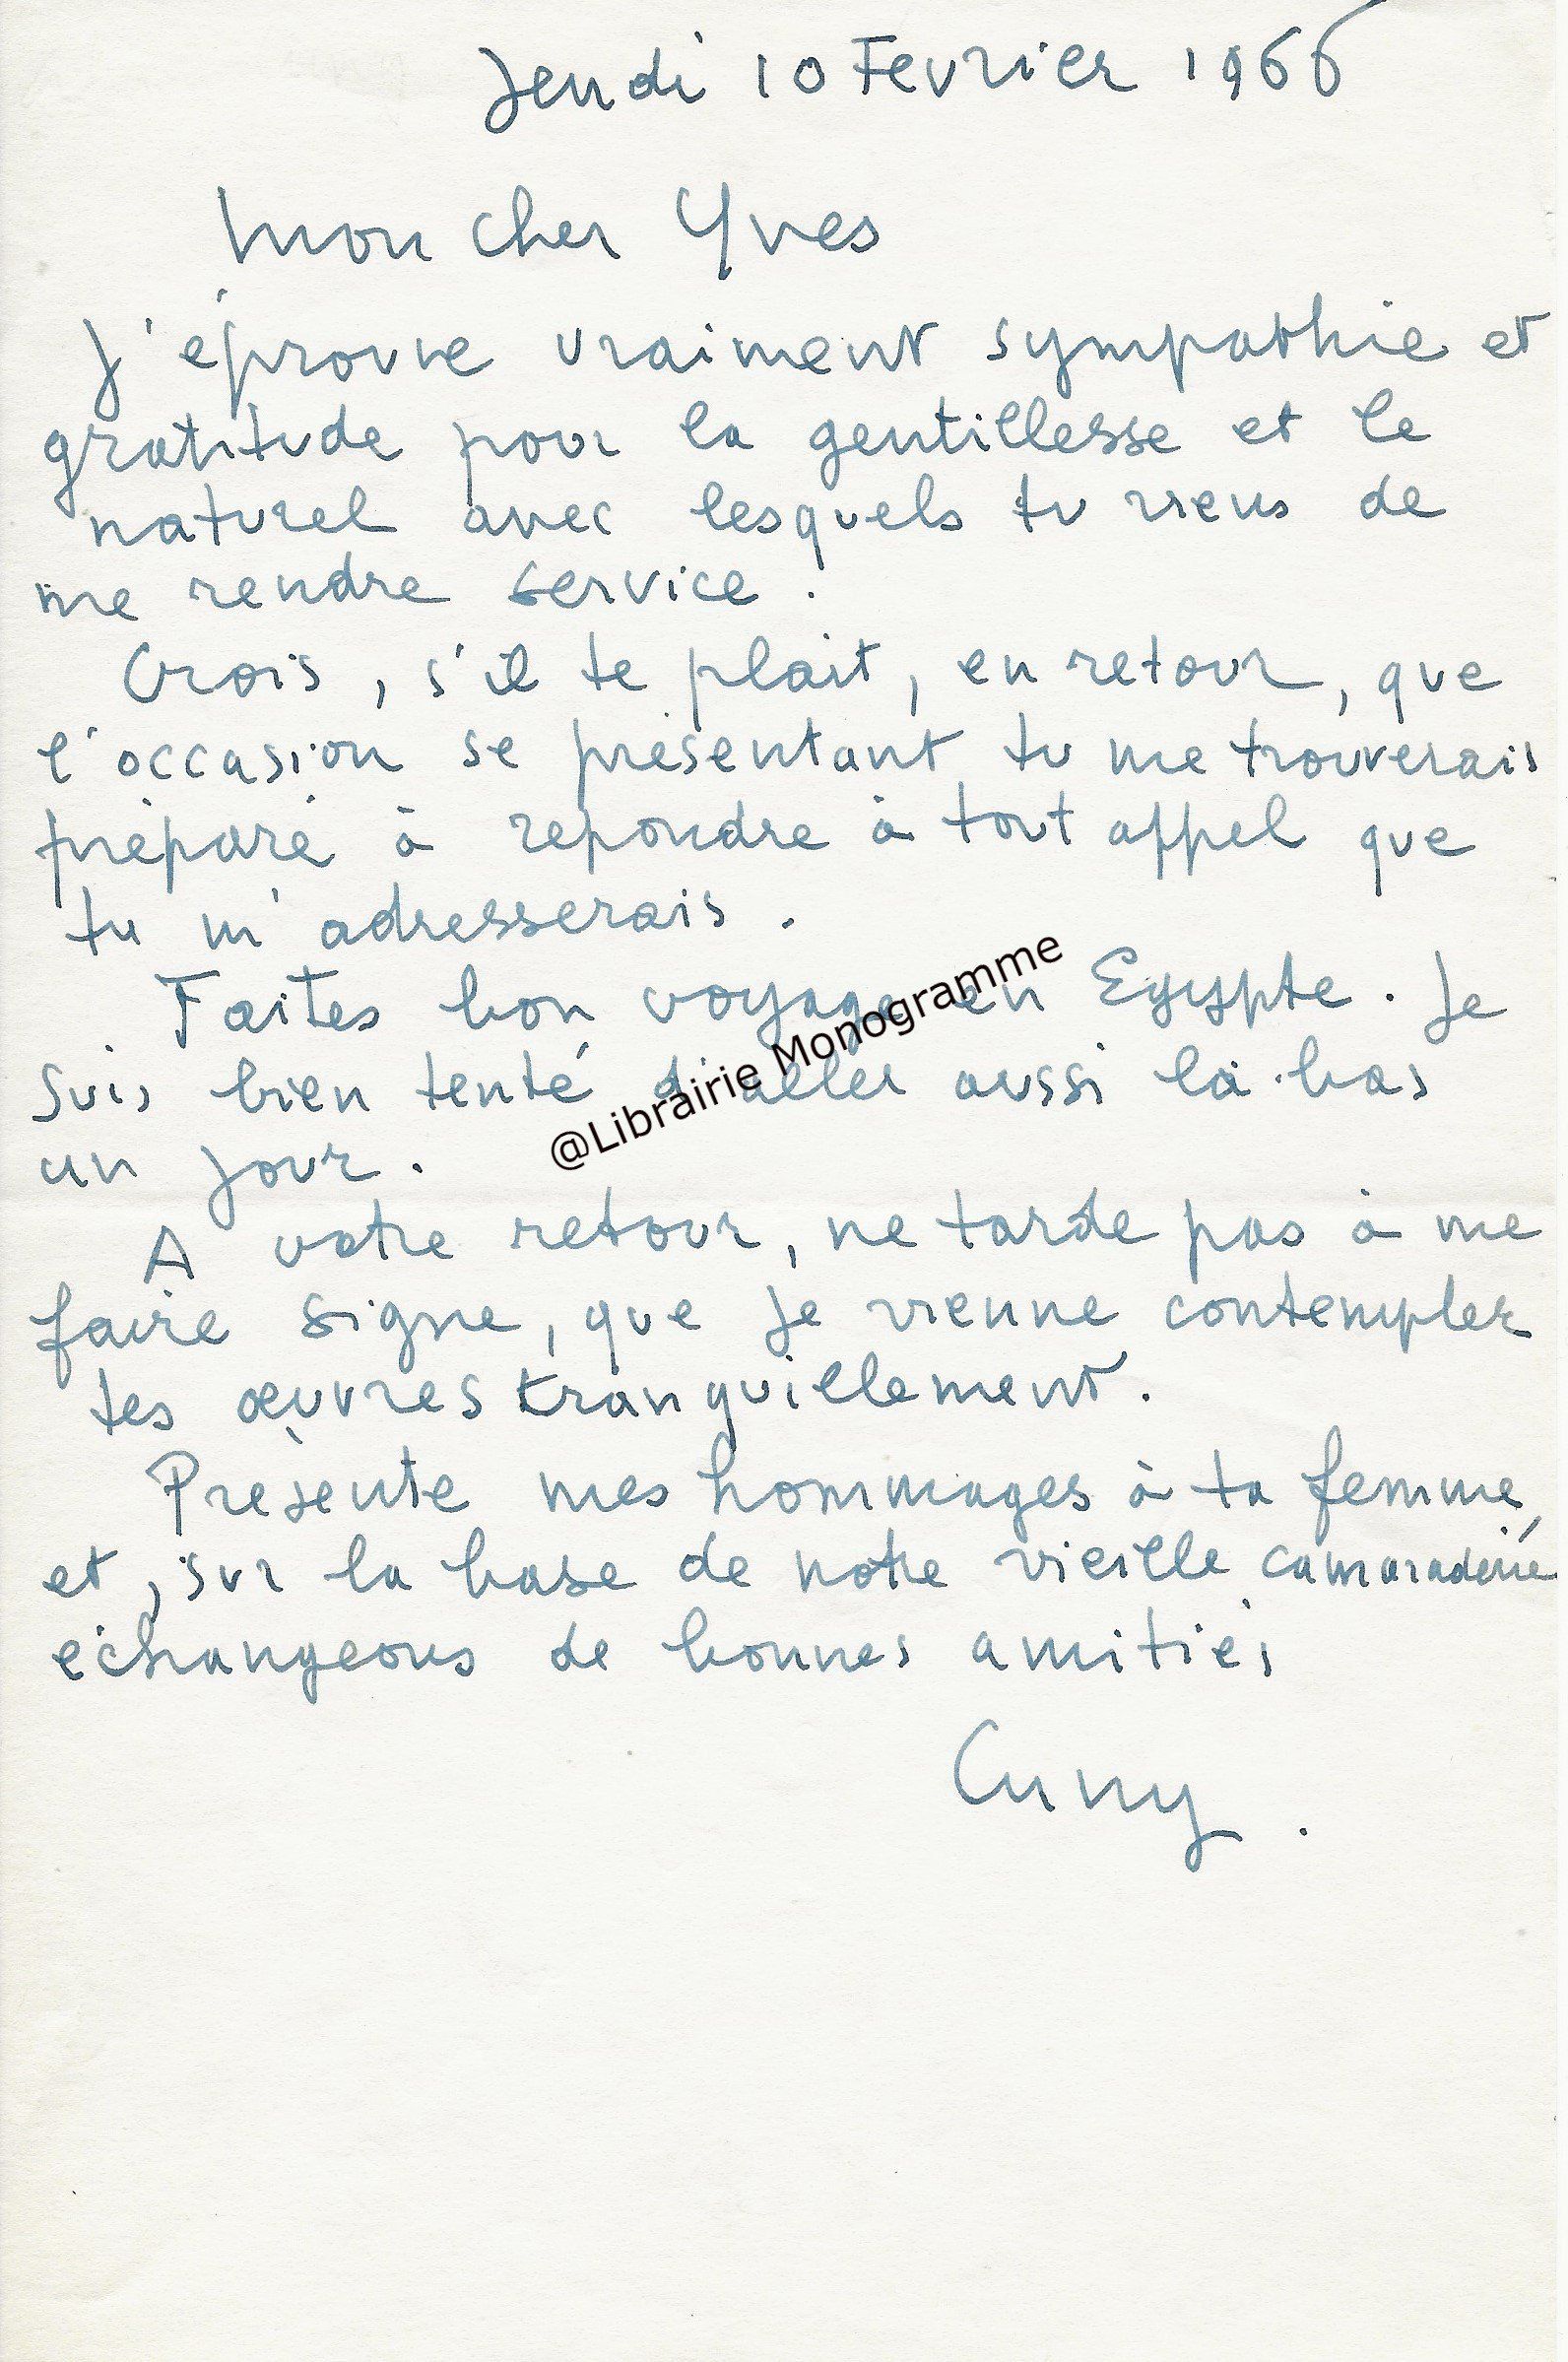 Jeudi 10 Fevrier 1966
Mon cher Yves
J'éprouve vraiment sympathie et
gratitude pour la gentillesse et le
naturel avec lesquels tu viens de
me rendre service.
Crois, s'il te plait, en retour, que
l'occasion se présentant, tu me trouverais
préparé à répondre à tout appel que
tu m'adresserais.
Faites bon voyage en Egypte. Je
suis bien tenté d'aller aussi là-bas
un jour.
@Librairie Monogramme
A votre retour, ne tarde pas à me
faire signe, que je vienne contempler
tes œuvres tranquillement.
Présente mes hommages à ta femme,
et, sur la base de notre vieille camaraderie
échangeons de bonnes amitiés
Cuny.